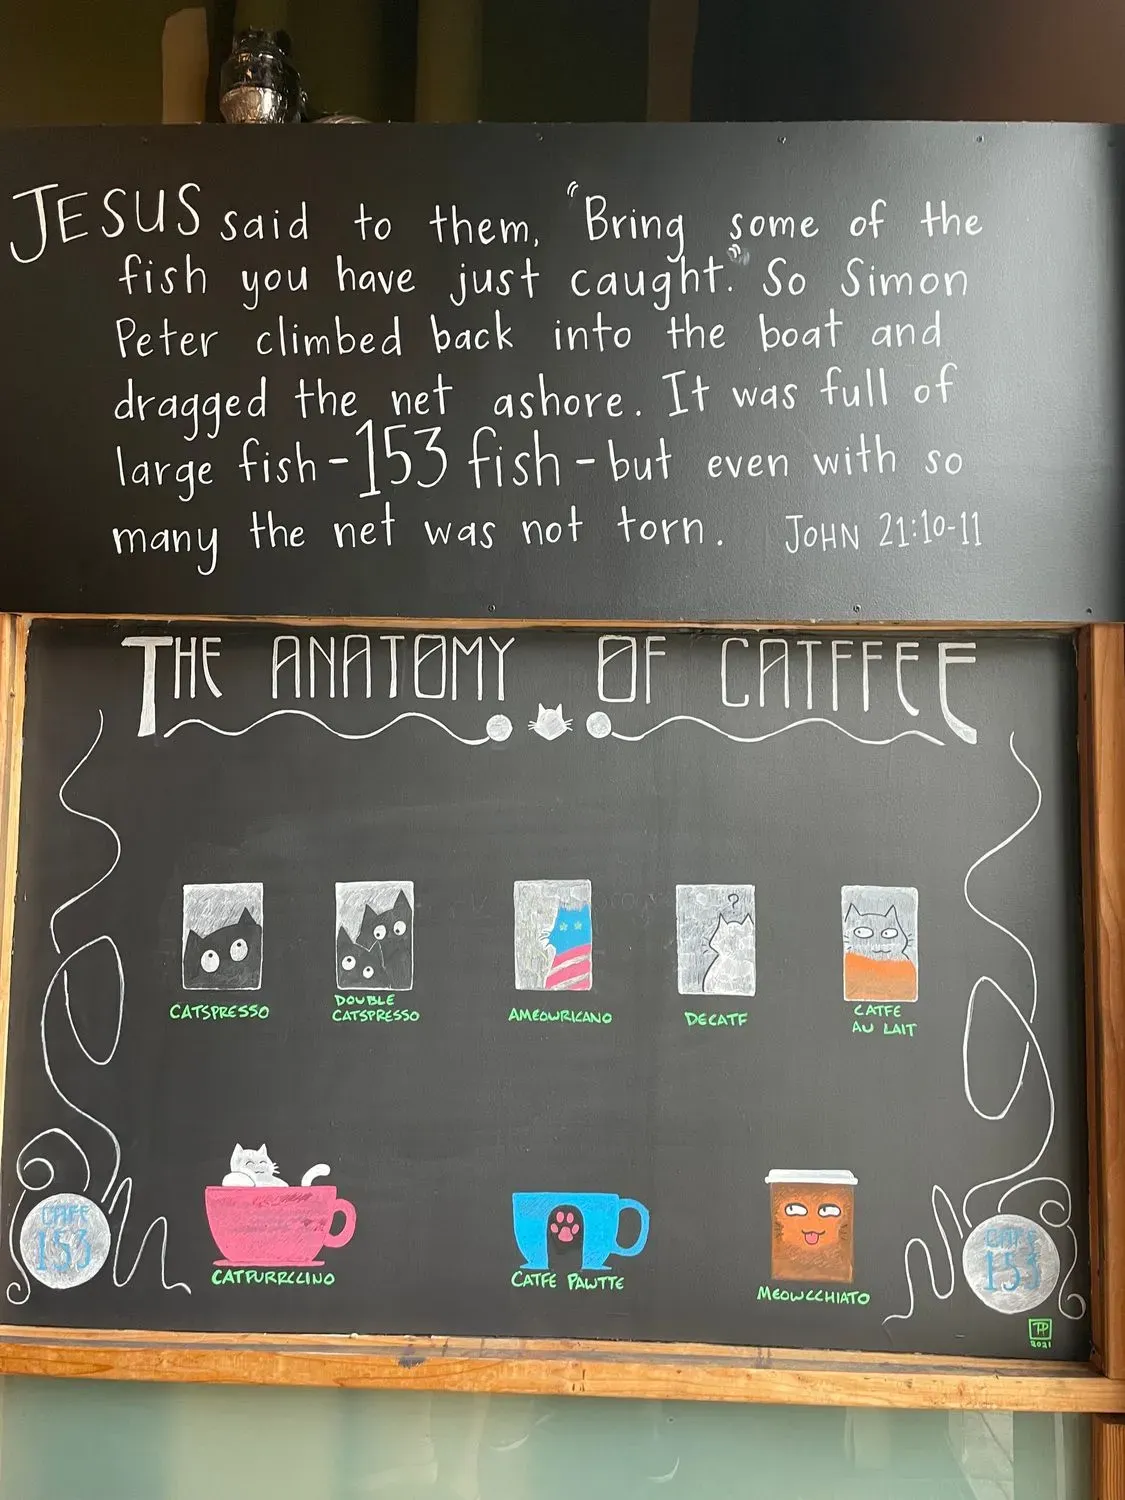 JESUS said to them, "Bring some of the
fish you have just caught." So Simon
Peter climbed back into the boat and
dragged the net ashore. It was full of
large fish - 153 fish - but even with so
many the net was not torn. JOHN 21:10-11
THE ANATOMY OF CATFFEE
CATSPRESSO
DOUBLE
CATSPRESSO
AMEOWRICANO
DECATF
CATFE
AU LAIT
?
CATPURRCCINO
CATFE PAWTTE
MEOWCCHIATO
CAFE
153
CAFE
153
2021